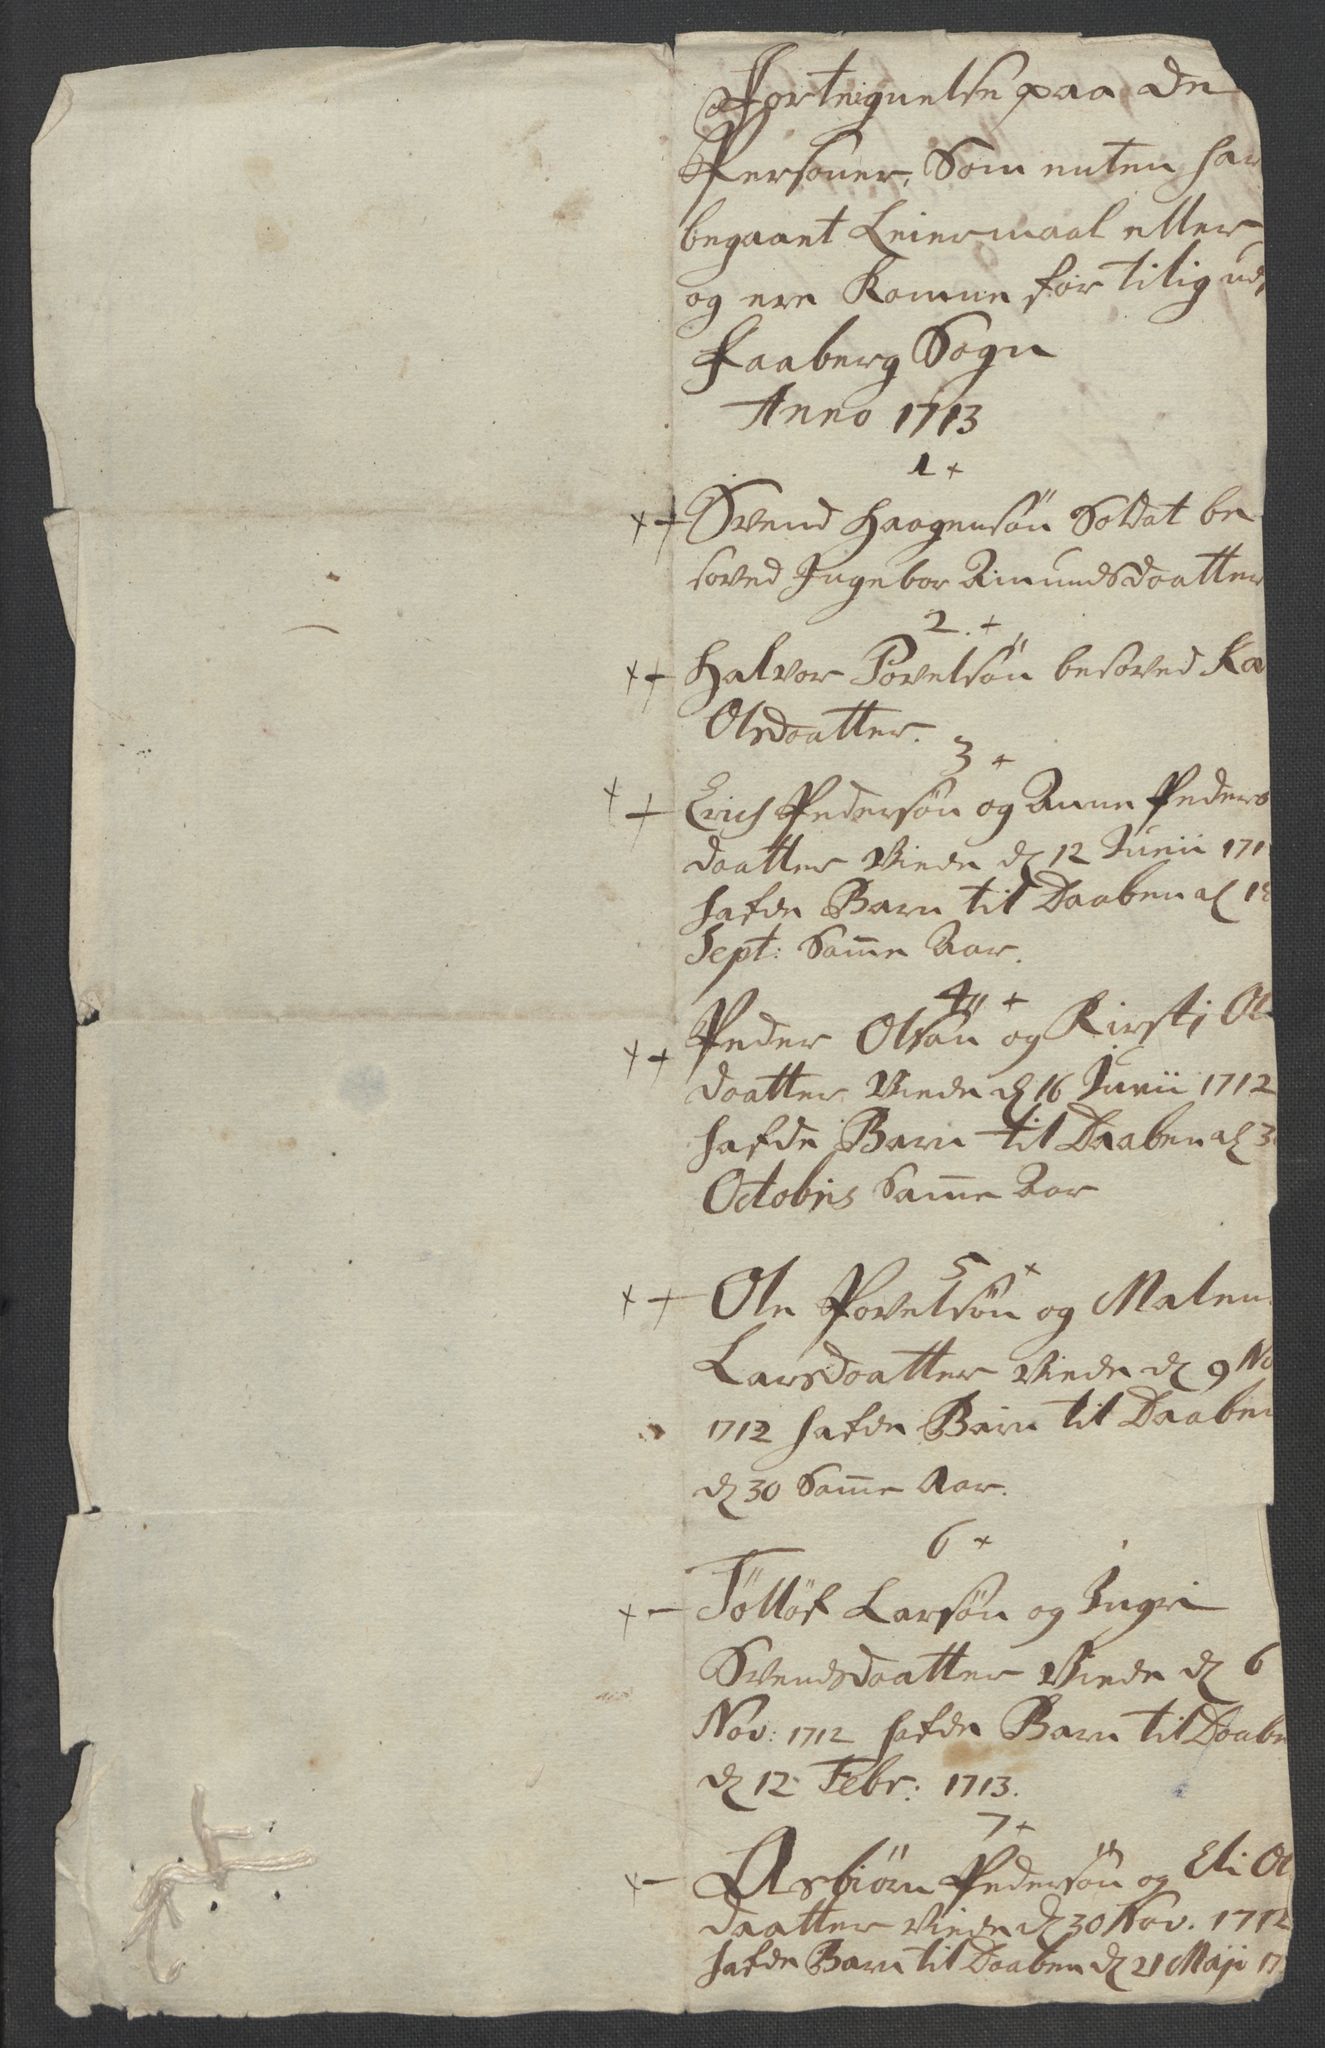 Forteignelse paa de
Personer, Som enten har
begaaet Leiermaal eller
og ere Komne for tilig ud,
Faaberg Sogn
Anno 1713
1 +
++ Svend Haagensön Soldat be
soved Ingebor Amundsdaatter
2. +
++ Halvor Povelsön besoved Ka
Olsdaatter.
3 +
++ Erich Pedersön og Anne Peders
daatter Viede d 12 Junii 171
hafde Barn til Daaben d 18
Sept: Samme Aar.
4 +
++ Peder Olsön og Kirsti Ol
daatter Viede d 16 Junii 1712
hafde Barn til Daaben d 3
Octobris Samme Aar
5 +
++ Ole Povelsön og Malen
Larsdaatter Viede d 9 No
1712 hafde Barn til Daaben
d 30 Samme Aar.
6 +
+- Töllöf Larsön og Ingri
Svendsdaatter Viede d 6
Nov: 1712 hafde Barn til Daabe
d 12 Febr: 1713.
7 +
+- Asbiörn Pedersön og Eli Ol
daatter Viede d 30 Nov. 1712
hafde Barn til Daaben d 21 Maji 17